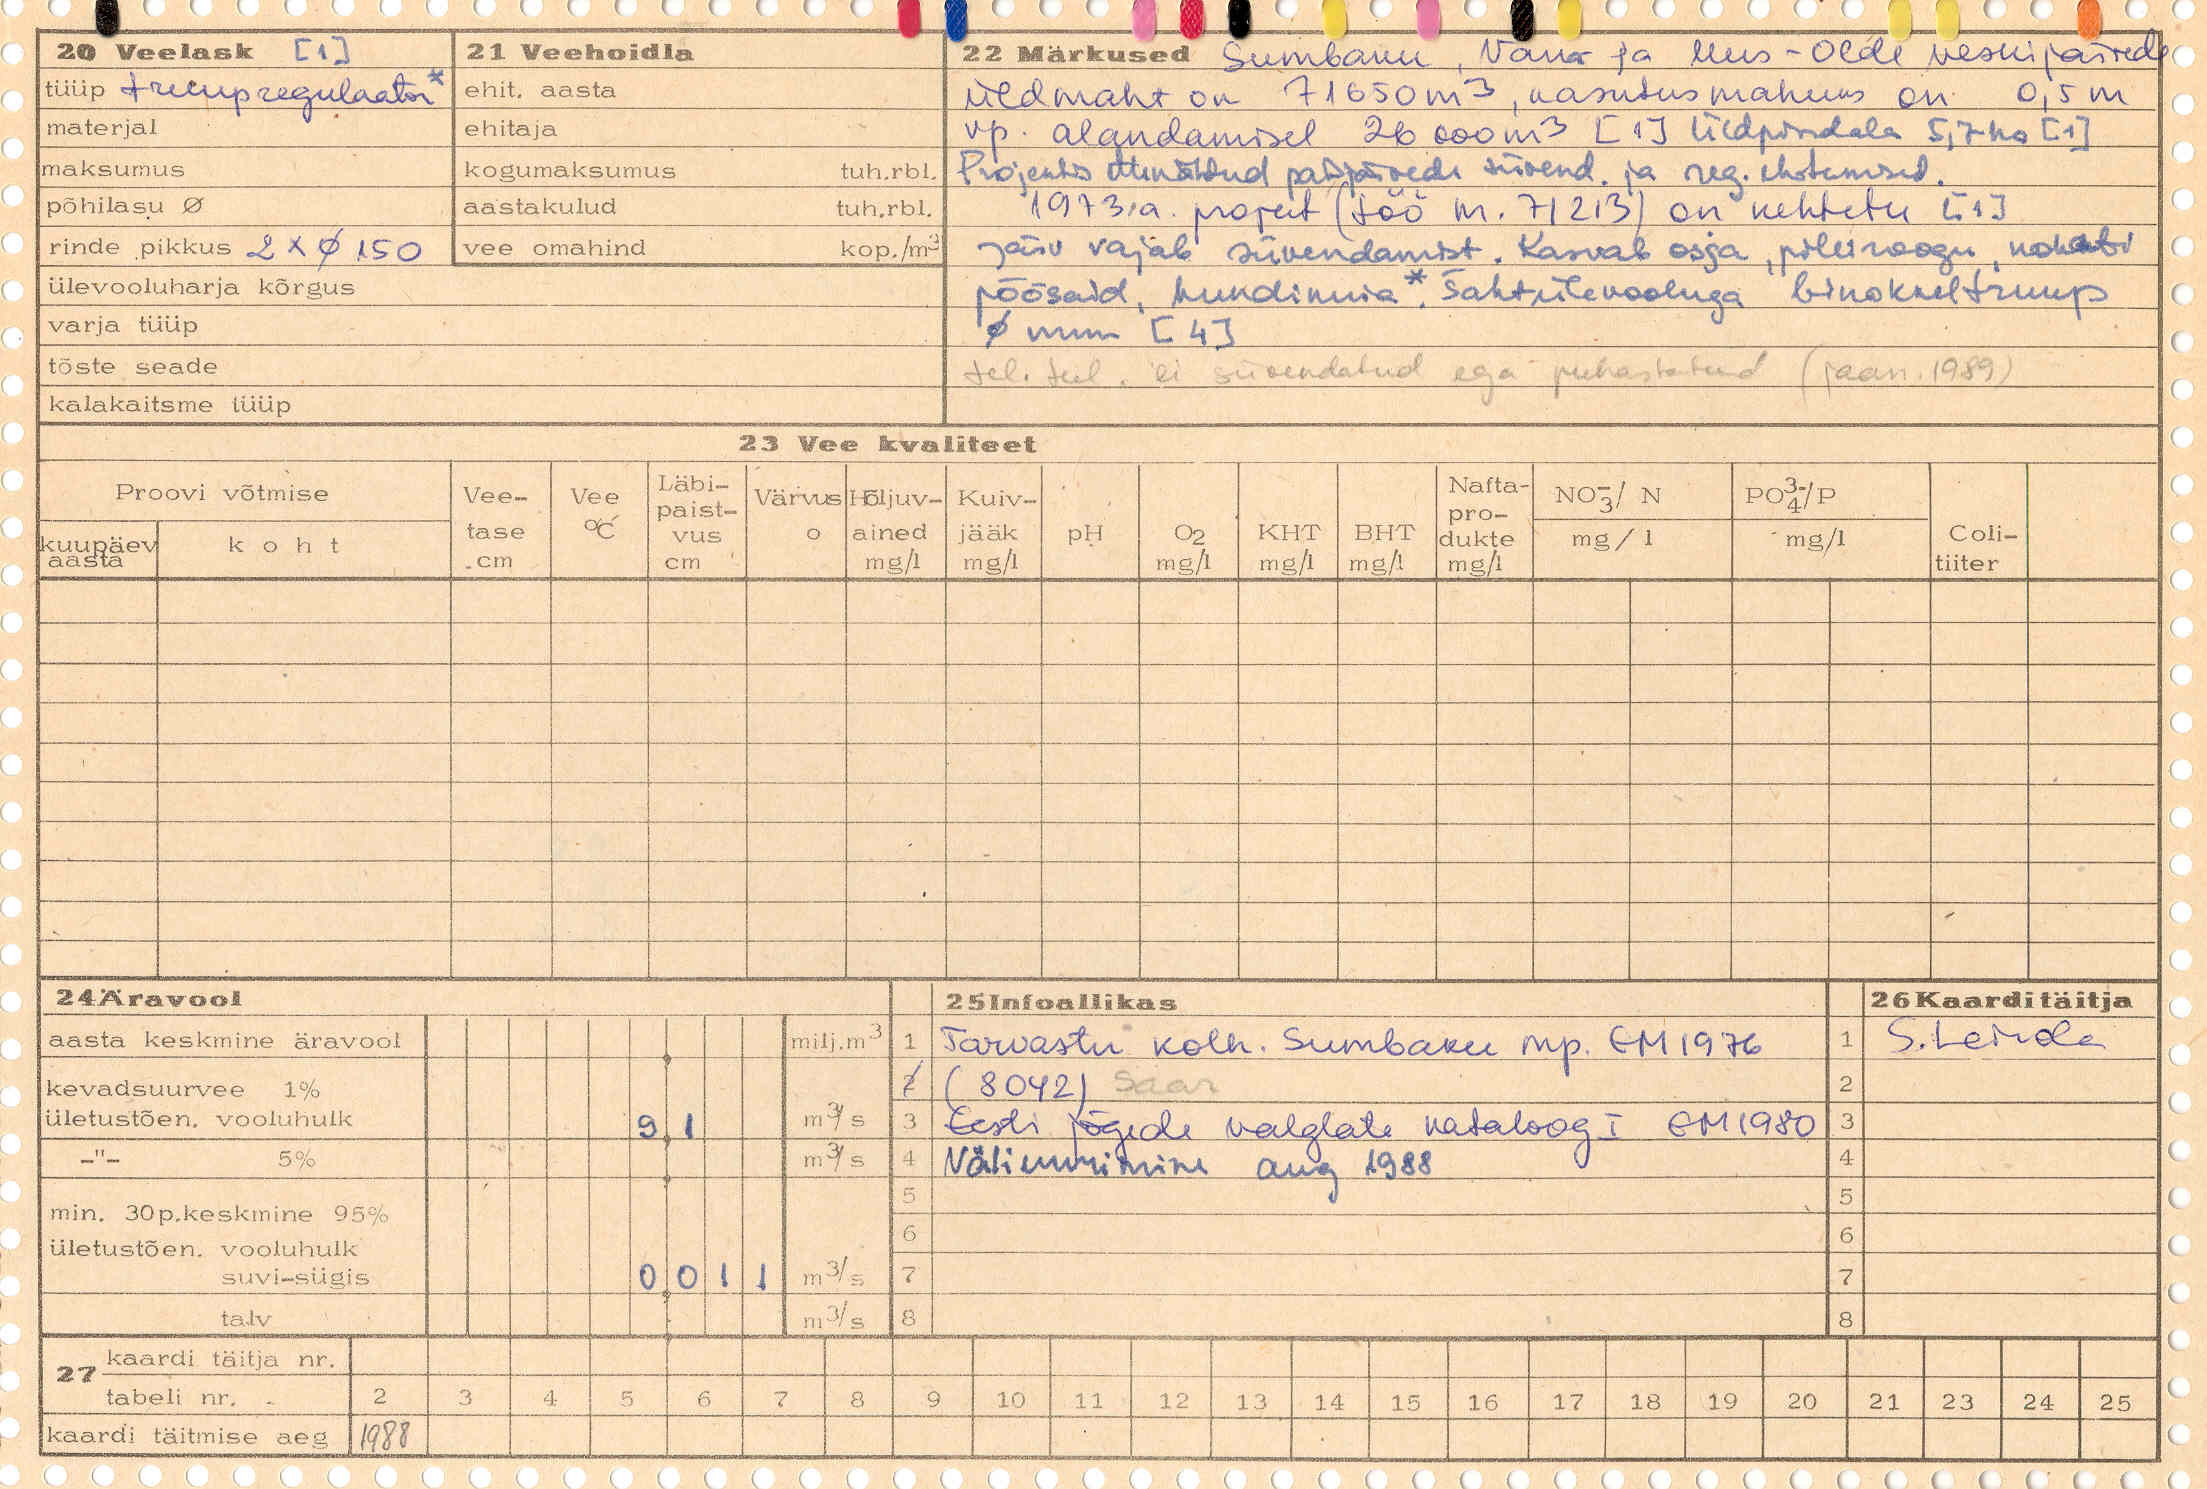 20 Veelask [1]
tüüp truupregulaator*
materjal
maksumus
põhilasu Ø
rinde pikkus 2 x Ø 150
ülevooluharja kõrgus
varja tüüp
tõste seade
kalakaitsme tüüp
21 Veehoidla
ehit. aasta
ehitaja
kogumaksumus tuh.rbl.
aastakulud tuh.rbl.
vee omahind kop./m³
22 Märkused Sumbaku, Vana ja Uus-Olde veskijärvede
üldmaht on 71650 m³, kasutusmahuks on 0,5 m
vp. alandamisel 26 000 m³ [1] Üldpindala 5,7 ha [1]
Projektis ettenähtud paisjärvede süvend. ja reg. ehitamised.
1973.a. projekt (töö nr. 71213) on kehtetu [1]
Järv vajab süvendamist. Kasvab osja, pilliroogu,
põõsaid, hundinuia*. Šahtülevooluga binokkeltruup
Ø mm [4]
tel. teel. ei süvendatud ega puhastatud (jaan. 1989)
23 Vee kvaliteet
Proovi võtmise
kuupäev aasta
koht
Vee-tase cm
Vee °C
Läbi-paist-vus cm
Värvus o
Hõljuv-ained mg/l
Kuiv-jääk mg/l
pH
O2 mg/l
KHT mg/l
BHT mg/l
Nafta-pro-dukte mg/l
NO3-/ N mg/l
PO4 3-/P mg/l
Coli-tiiter
24 Äravool
aasta keskmine äravool milj.m³
kevadsuurvee 1%
ületustõen. vooluhulk 9,1 m³/s
-"- 5% m³/s
min. 30p.keskmine 95%
ületustõen. vooluhulk
suvi-sügis 0,011 m³/s
talv m³/s
25 Infoallikas
1 Tarvastu kolh. Sumbaku mp. EM 1976
2 (8042) Saar
3 Eesti jõgede valglate kataloog I EM 1980
4 Väliuurimine aug 1988
5
6
7
8
26 Kaardi täitja
1 S. Leinola
2
3
4
5
6
7
8
27 kaardi täitja nr.
tabeli nr. 2 3 4 5 6 7 8 9 10 11 12 13 14 15 16 17 18 19 20 21 23 24 25
kaardi täitmise aeg 1988